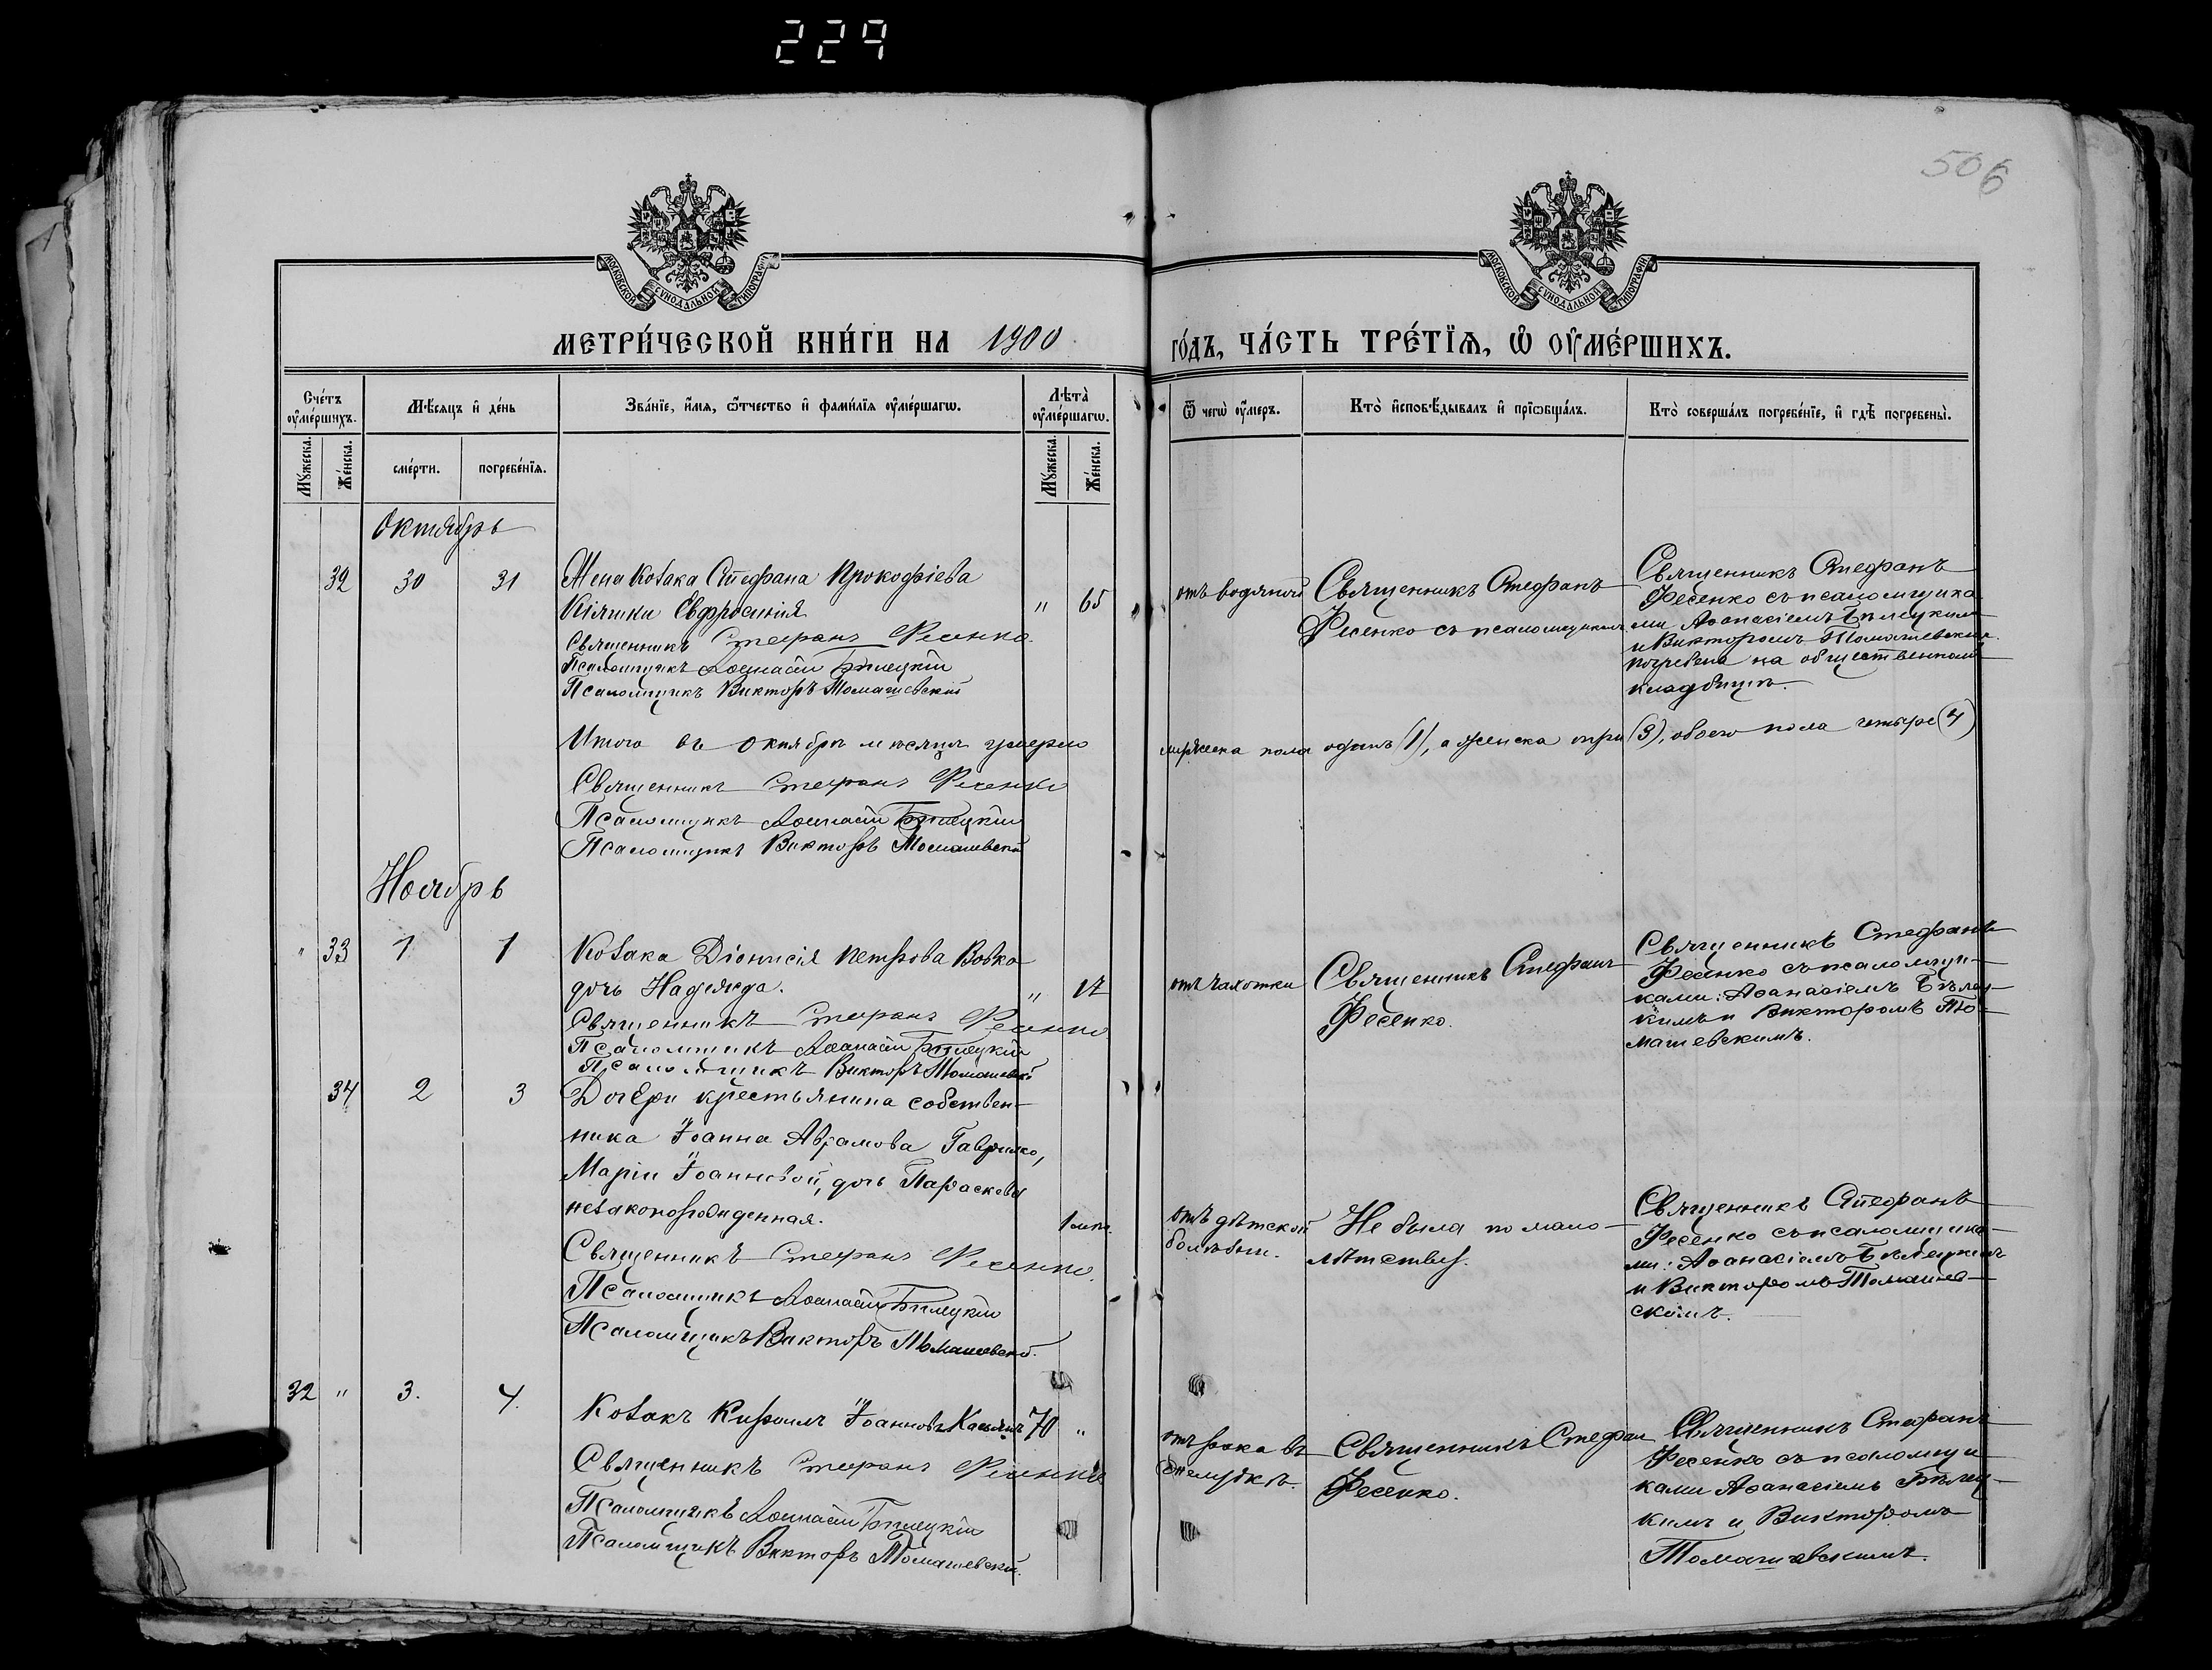 229
506
МОСКОВСКОЙ СУНОДАЛЬНОЙ ТИПОГРАФІИ
МОСКОВСКОЙ СУНОДАЛЬНОЙ ТИПОГРАФІИ
МЕТРИ́ЧЕСКОЙ КНИ́ГИ НА 1900
ГО́ДЪ, ЧА́СТЬ ТРЕ́ТЇѦ, Ѡ҆ ОУ҆МЕ́РШИХЪ.
Сче́тъ ѹ҆ме́ршихъ.
Мѣ́сяцъ и҆ де́нь
Зва́нїе, и҆́мѧ, ѻ҆́тчество и҆ фами́лїѧ ѹ҆ме́ршагѡ.
Лѣта̀ ѹ҆ме́ршагѡ.
Ѿ чегѡ̀ ѹ҆́меръ.
Кто̀ и҆сповѣ́дывалъ и҆ прїѡбща́лъ.
Кто̀ соверша́лъ погребе́нїе, и҆ гдѣ̀ погребены̀.
Мꙋ́жеска.
Же́нска.
сме́рти.
погребе́нїѧ.
Мꙋ́жеска.
Же́нска.
Октябрь
32 30 31 Жена козака Стефана Прокофіева
Евфросинія " 65
Священникъ Стефанъ Фесенко
Псаломщикъ Аѳанасій Бѣлецкій
Псаломщикъ Викторъ Томашевскій
отъ водяной
Священникъ Стефанъ
Фесенко съ псаломщиками
Священникъ Стефанъ
Фесенко съ псаломщика
ми Аѳанасіемъ Бѣлецкимъ
и Викторомъ Томашевскимъ.
погребена на общественномъ
кладбищѣ.
Итого въ Октябрѣ мѣсяцѣ умерло
мужеска пола одинъ (1), а женска три (3), обоего пола четыре (4)
Священникъ Стефанъ Фесенко
Псаломщикъ Аѳанасій Бѣлецкій
Псаломщикъ Викторъ Томашевскій
Ноябрь
" 33 1 1 Козака Діонисія Петрова Вовка
дочь Надежда. " 17
Священникъ Стефанъ Фесенко
Псаломщикъ Аѳанасій Бѣлецкій
Псаломщикъ Викторъ Томашевскій
отъ чахотки
Священникъ Стефанъ
Фесенко.
Священникъ Стефанъ
Фесенко съ псаломщи-
ками: Аѳанасіемъ Бѣлец-
кимъ и Викторомъ То-
машевскимъ.
34 2 3 Дочери крестьянина собствен-
ника Іоанна Аврамова Гаврилко,
Маріи Іоанновой, дочь Параскева
незаконорожденная. 1 мѣс.
Священникъ Стефанъ Фесенко.
Псаломщикъ Аѳанасій Бѣлецкій
Псаломщикъ Викторъ Томашевскій.
отъ дѣтской
болѣзни.
Не была по мало-
лѣтству.
Священникъ Стефанъ
Фесенко съ псаломщика-
ми: Аѳанасіемъ Бѣлецкимъ
и Викторомъ Томашев-
скимъ.
32 " 3. 4. Козакъ Кирилъ Іоанновъ 70 "
Священникъ Стефанъ Фесенко
Псаломщикъ Аѳанасій Бѣлецкій
Псаломщикъ Викторъ Томашевскій.
отъ рака въ
желудкѣ.
Священникъ Стефан
Фесенко.
Священникъ Стефанъ
Фесенко съ псаломщи
ками Аѳанасіемъ Бѣлец-
кимъ и Викторомъ
Томашевскимъ.